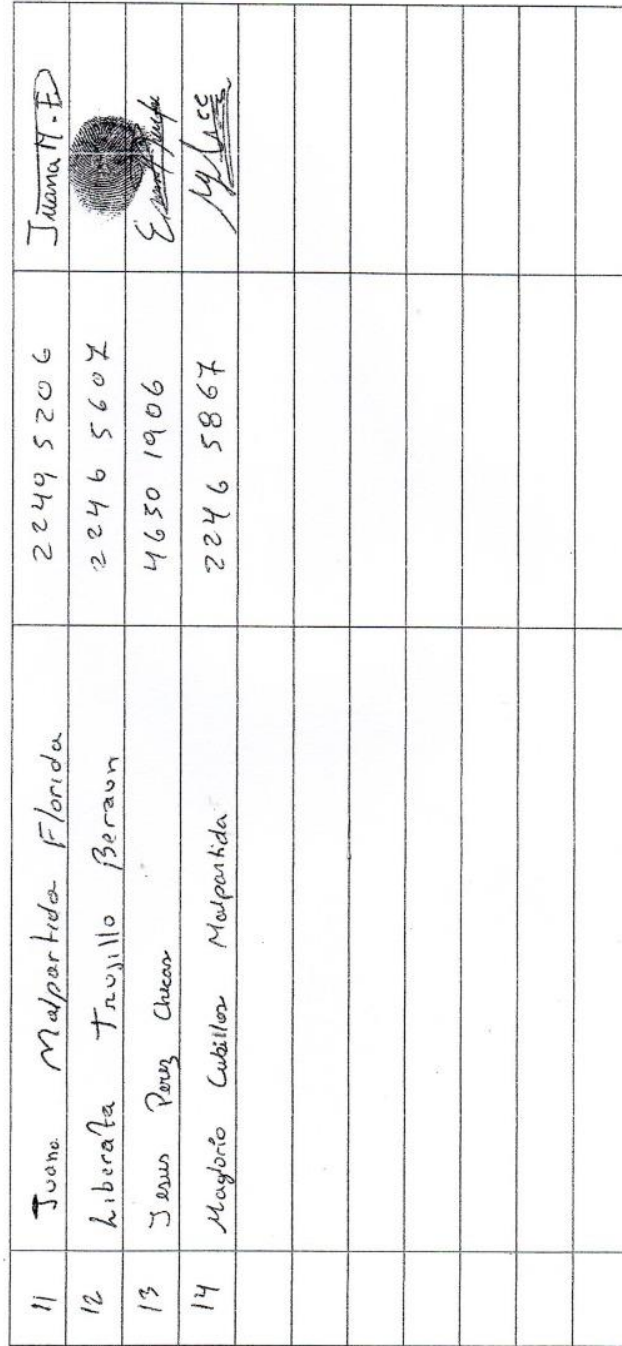 11 Juana Malpartida Florida 2249 5206 Juana M.F
12 Liberata Trujillo Beraun 2246 5607
13 Jesus Perez Chucas 4630 1906
14 Maglorio Cubillos Malpartida 2246 5867